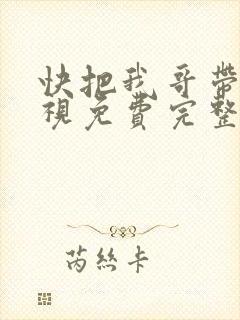 快把我哥帶
視免費完整
芮絲卡